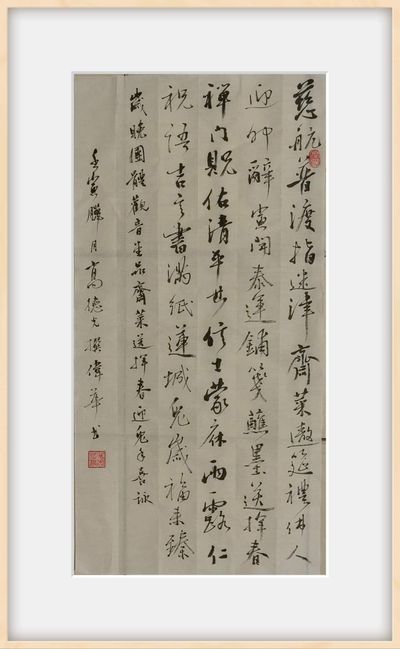 慈航普渡指迷津齋菜邀筵禮佛人
迎卯辭寅開泰運鋪箋蘸墨送揮春
禪門貺佑清平世信士蒙庥雨露仁
祝語吉言書滿紙蓮城兔歲福来臻
歲晚團體觀音堂品齋菜送揮春迎兔年喜詠
壬寅臘月高德光撰偉華书